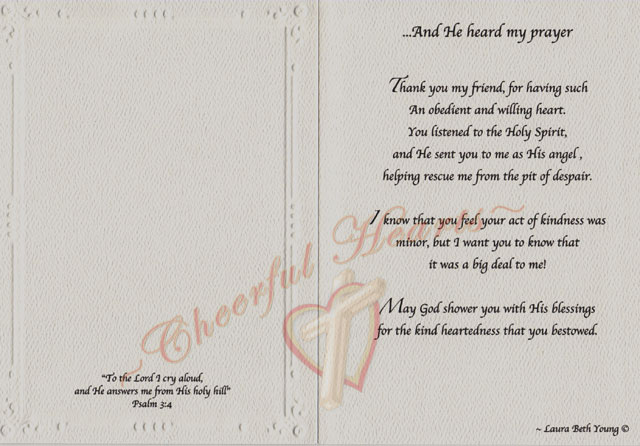 "To the Lord I cry aloud,
and He answers me from His holy hill"
Psalm 3:4
...And He heard my prayer
Thank you my friend, for having such
An obedient and willing heart.
You listened to the Holy Spirit,
and He sent you to me as His angel ,
helping rescue me from the pit of despair.
I know that you feel your act of kindness was
minor, but I want you to know that
it was a big deal to me!
May God shower you with His blessings
for the kind heartedness that you bestowed.
~ Laura Beth Young ©
~Cheerful Hearts~